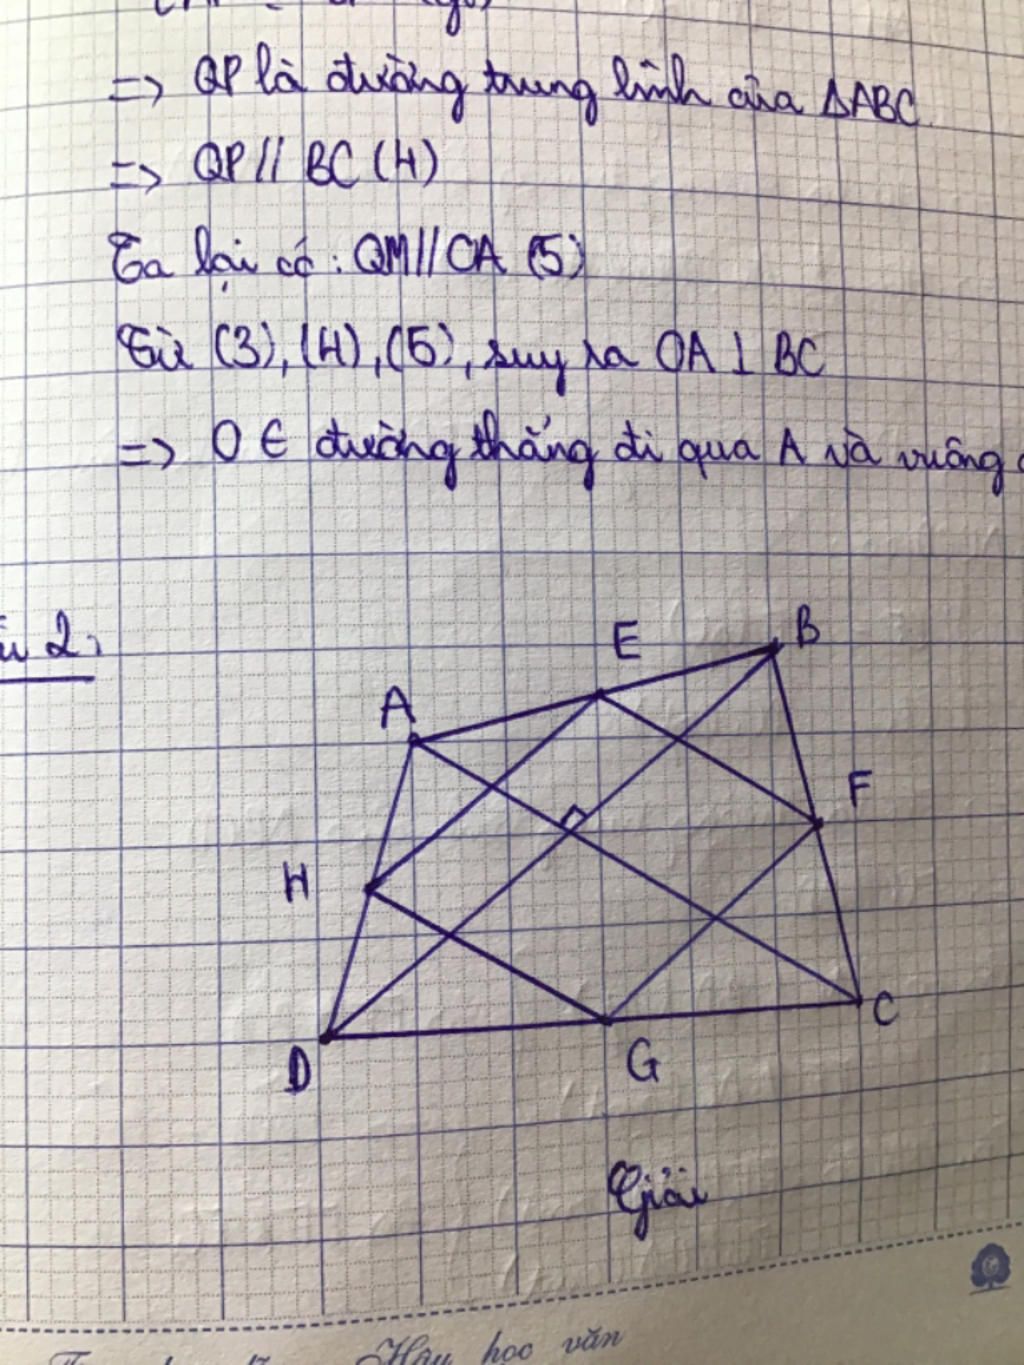 => QP là đường trung bình của ΔABC
=> QP // BC (4)
Ta lại có: QM // OA (5)
Từ (3), (4), (5), suy ra OA ⊥ BC
=> O ∈ đường thẳng đi qua A và vuông
2:
E
B
A
F
H
C
D
G
Giải
Hậu học văn